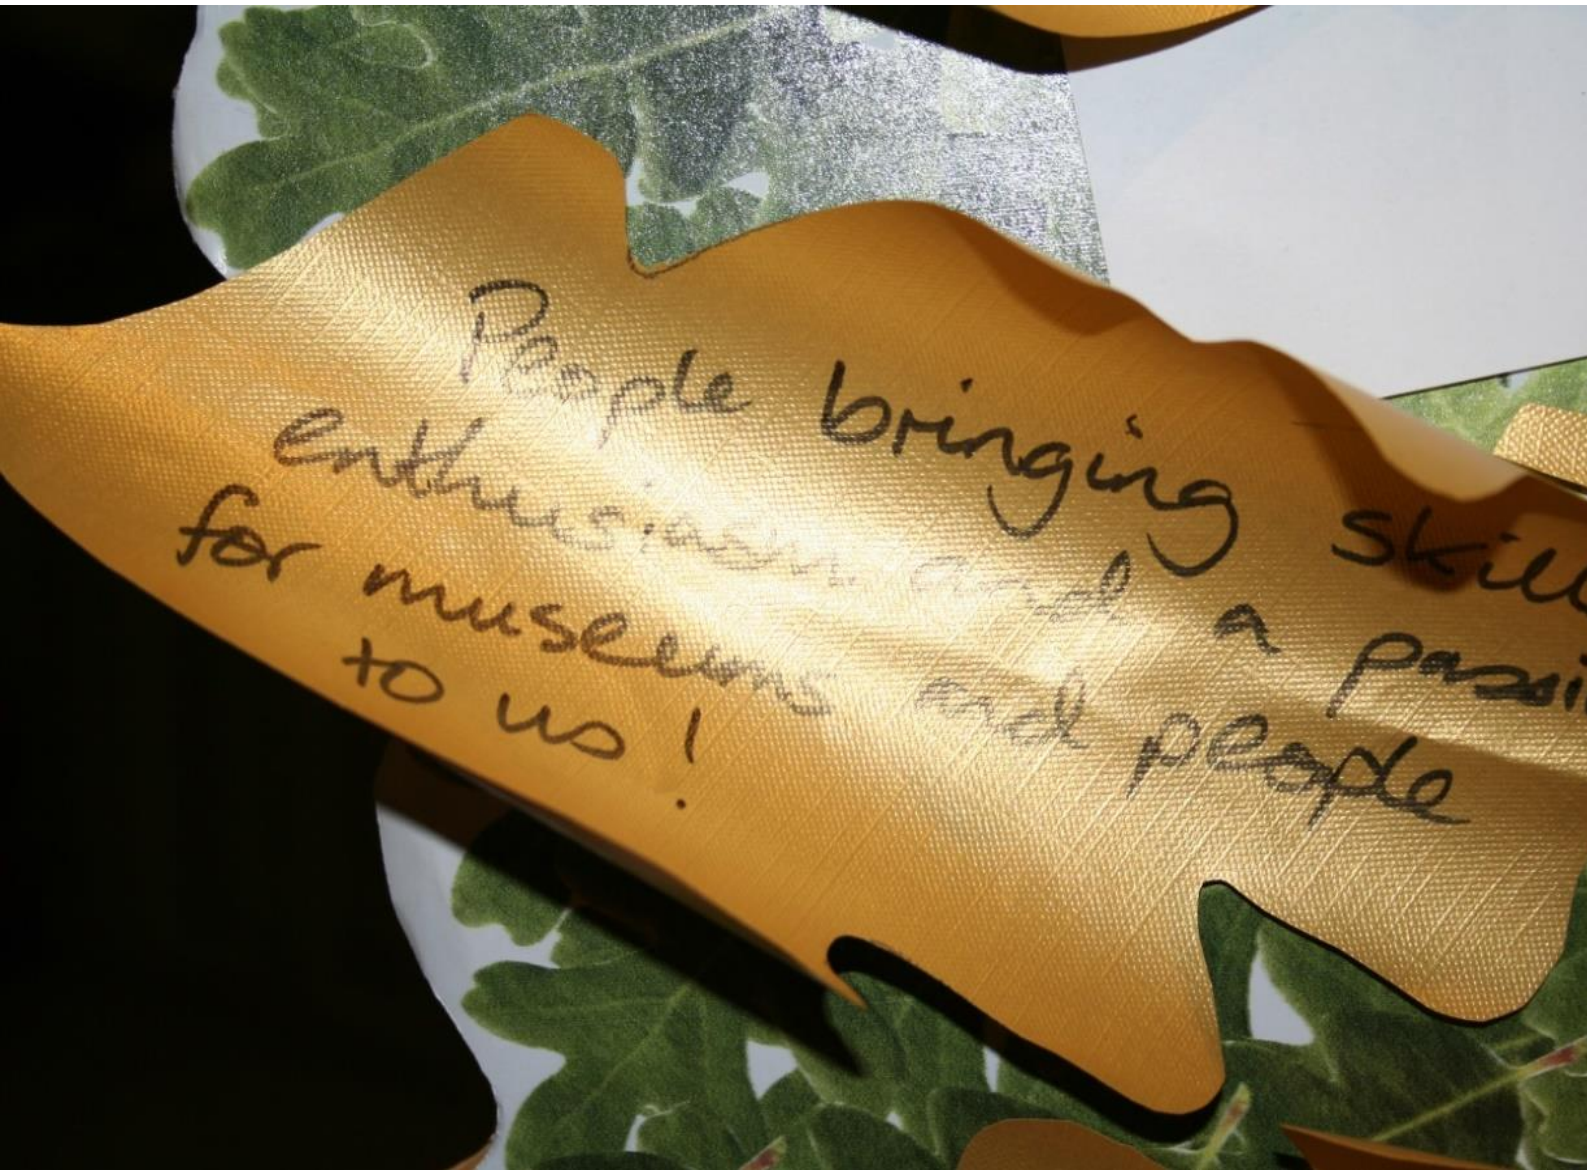 People bringing skill
enthusiasm and a passi
for museums and people
to us!